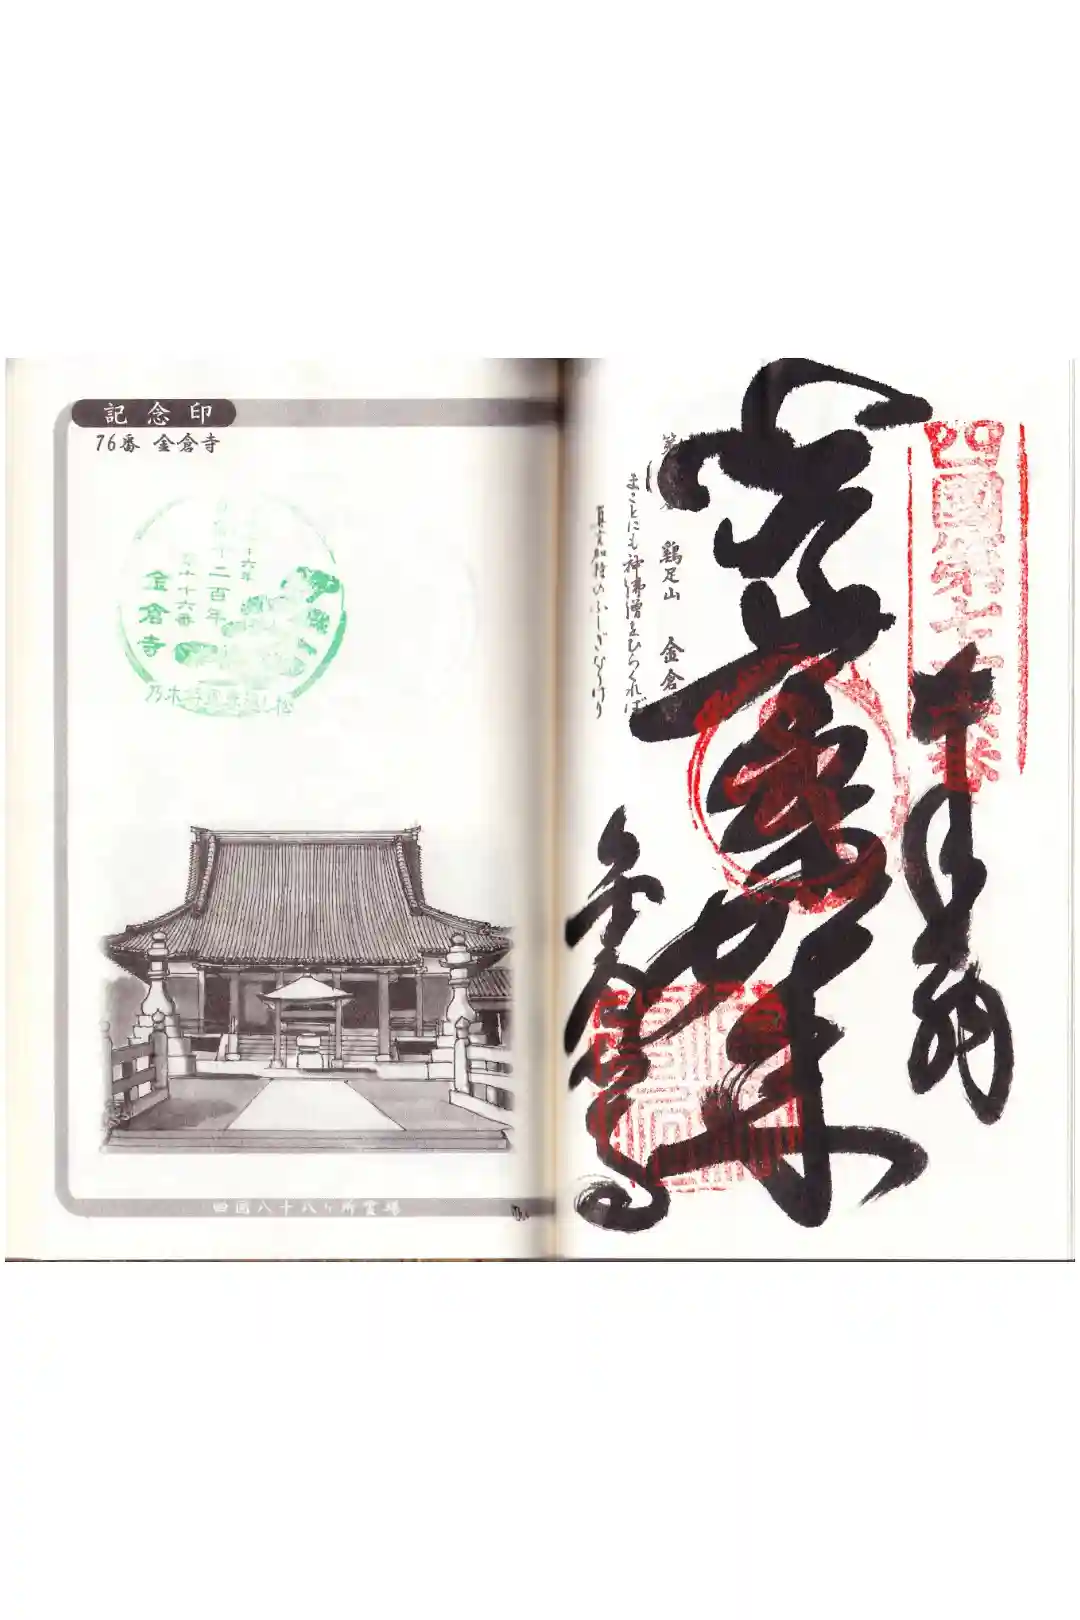 記念印
76番 金倉寺
二百年
十六番
金倉寺
四国八十八ヶ所霊場
四國第七十六番
奉納
鶏足山 金倉寺
まことにも神佛僧をひらくれば
真言加持のふしぎなりけり
薬師如来
金倉寺